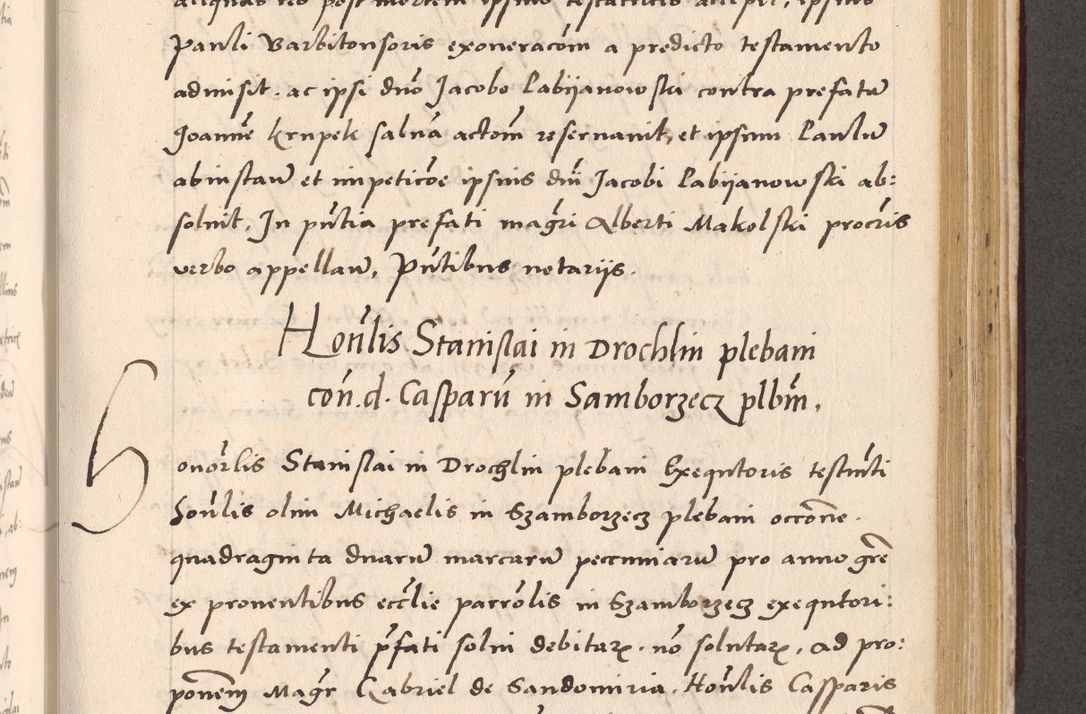 aliquas res post mortem ipsius testatricis accepit, ipsius
Pauli Barbitonsoris exoneracōm a predicto testamento
admisit . ac ipsi dn̄o Jacobo Labijanowski contra prefatū
Joannē Krupek salua actōm reseruauit, et ipsum Paulū
ab instan̄ et impeticōe ipsius dn̄i Jacobi Labijanowski ab:
soluit. In pn̄tia prefati mag̃ri Alberti Makolski procr̃is
verbo appellan̄, Pn̄tibus notarijs .
Hon̄lis Stanislai in Drochlin plebani
con̄.d. Casparū in Samborzecz plbm̄,
Honor̄lis Stanislai in Drochlin plebani Exequutoris testm̄ti
honr̄lis olim Michaelis in Szamborzecz plebani occōne .
quadraginta duarū marcarū pecuniarū pro anno gr̄e
ex prouentibus eccl̄ie parrōlis in Szamborzecz exequutori:
bus testamenti p̄fati solui debitarꝝ . nō solutarꝝ . ad pro:
ponem̄ Magr̄ Gabriel de Sandomiria . Hon̄lis Casparis